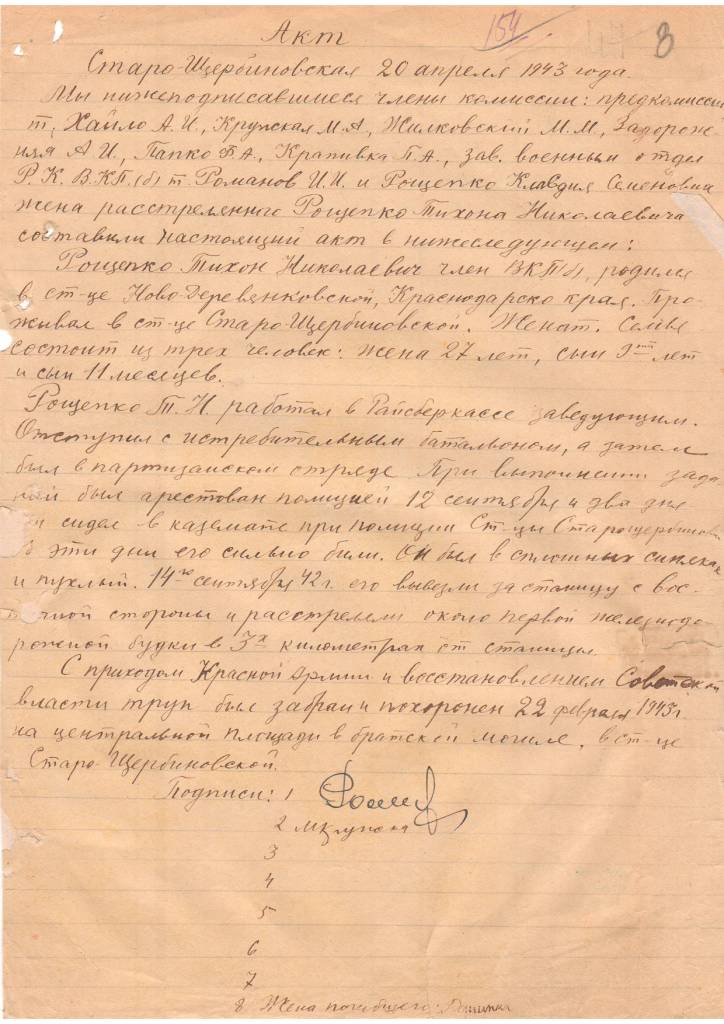 154
44
8
Акт
Старо-Щербиновская 20 апреля 1943 года.
Мы нижеподписавшиеся члены комиссии: предкомиссии
т. Хайло А.И., Крупская М.А, Жилковский М.М, Задорож-
няя А.И., Папко Ф.А., Крапивка П.А., зав. военным отдел
Р.К. ВКП(б) т. Романов И.И. и Рощепко Клавдия Семеновна
жена расстрелянного Рощепко Тихона Николаевича
составили настоящий акт в нижеследующем:
Рощепко Тихон Николаевич член ВКП(б), родился
в ст-це Ново-Деревянковской, Краснодарско края. Про-
живал в ст-це Старо-Щербиновской. Женат. Семья
состоит из трех человек: жена 27 лет, сын 9ти лет
и сын 11 месяцев.
Рощепко Т.Н. работал в Райсберкассе заведующим.
Отступил с истребительным батальоном, а затем
был в партизанском отряде. При выполнении зада-
ний был арестован полицией 12 сентября и два дня
сидел в каземате при полиции Ст-цы Старощербиновск
В эти дни его сильно били. Он был в сплошных синяках
и пухлый. 14го сентября 42 г. его вывезли за станицу с вос-
точной стороны и расстреляли около первой железнодо-
рожной будки в 3х километрах от станицы.
С приходом Красной армии и восстановлением Советской
власти труп был забран и похоронен 22 февраля 1943 г.
на центральной площади в братской могиле, в ст-це
Старо-Щербиновской.
Подписи: 1
2 МКрупска
3
4
5
6
7
8 Жена погибшего: